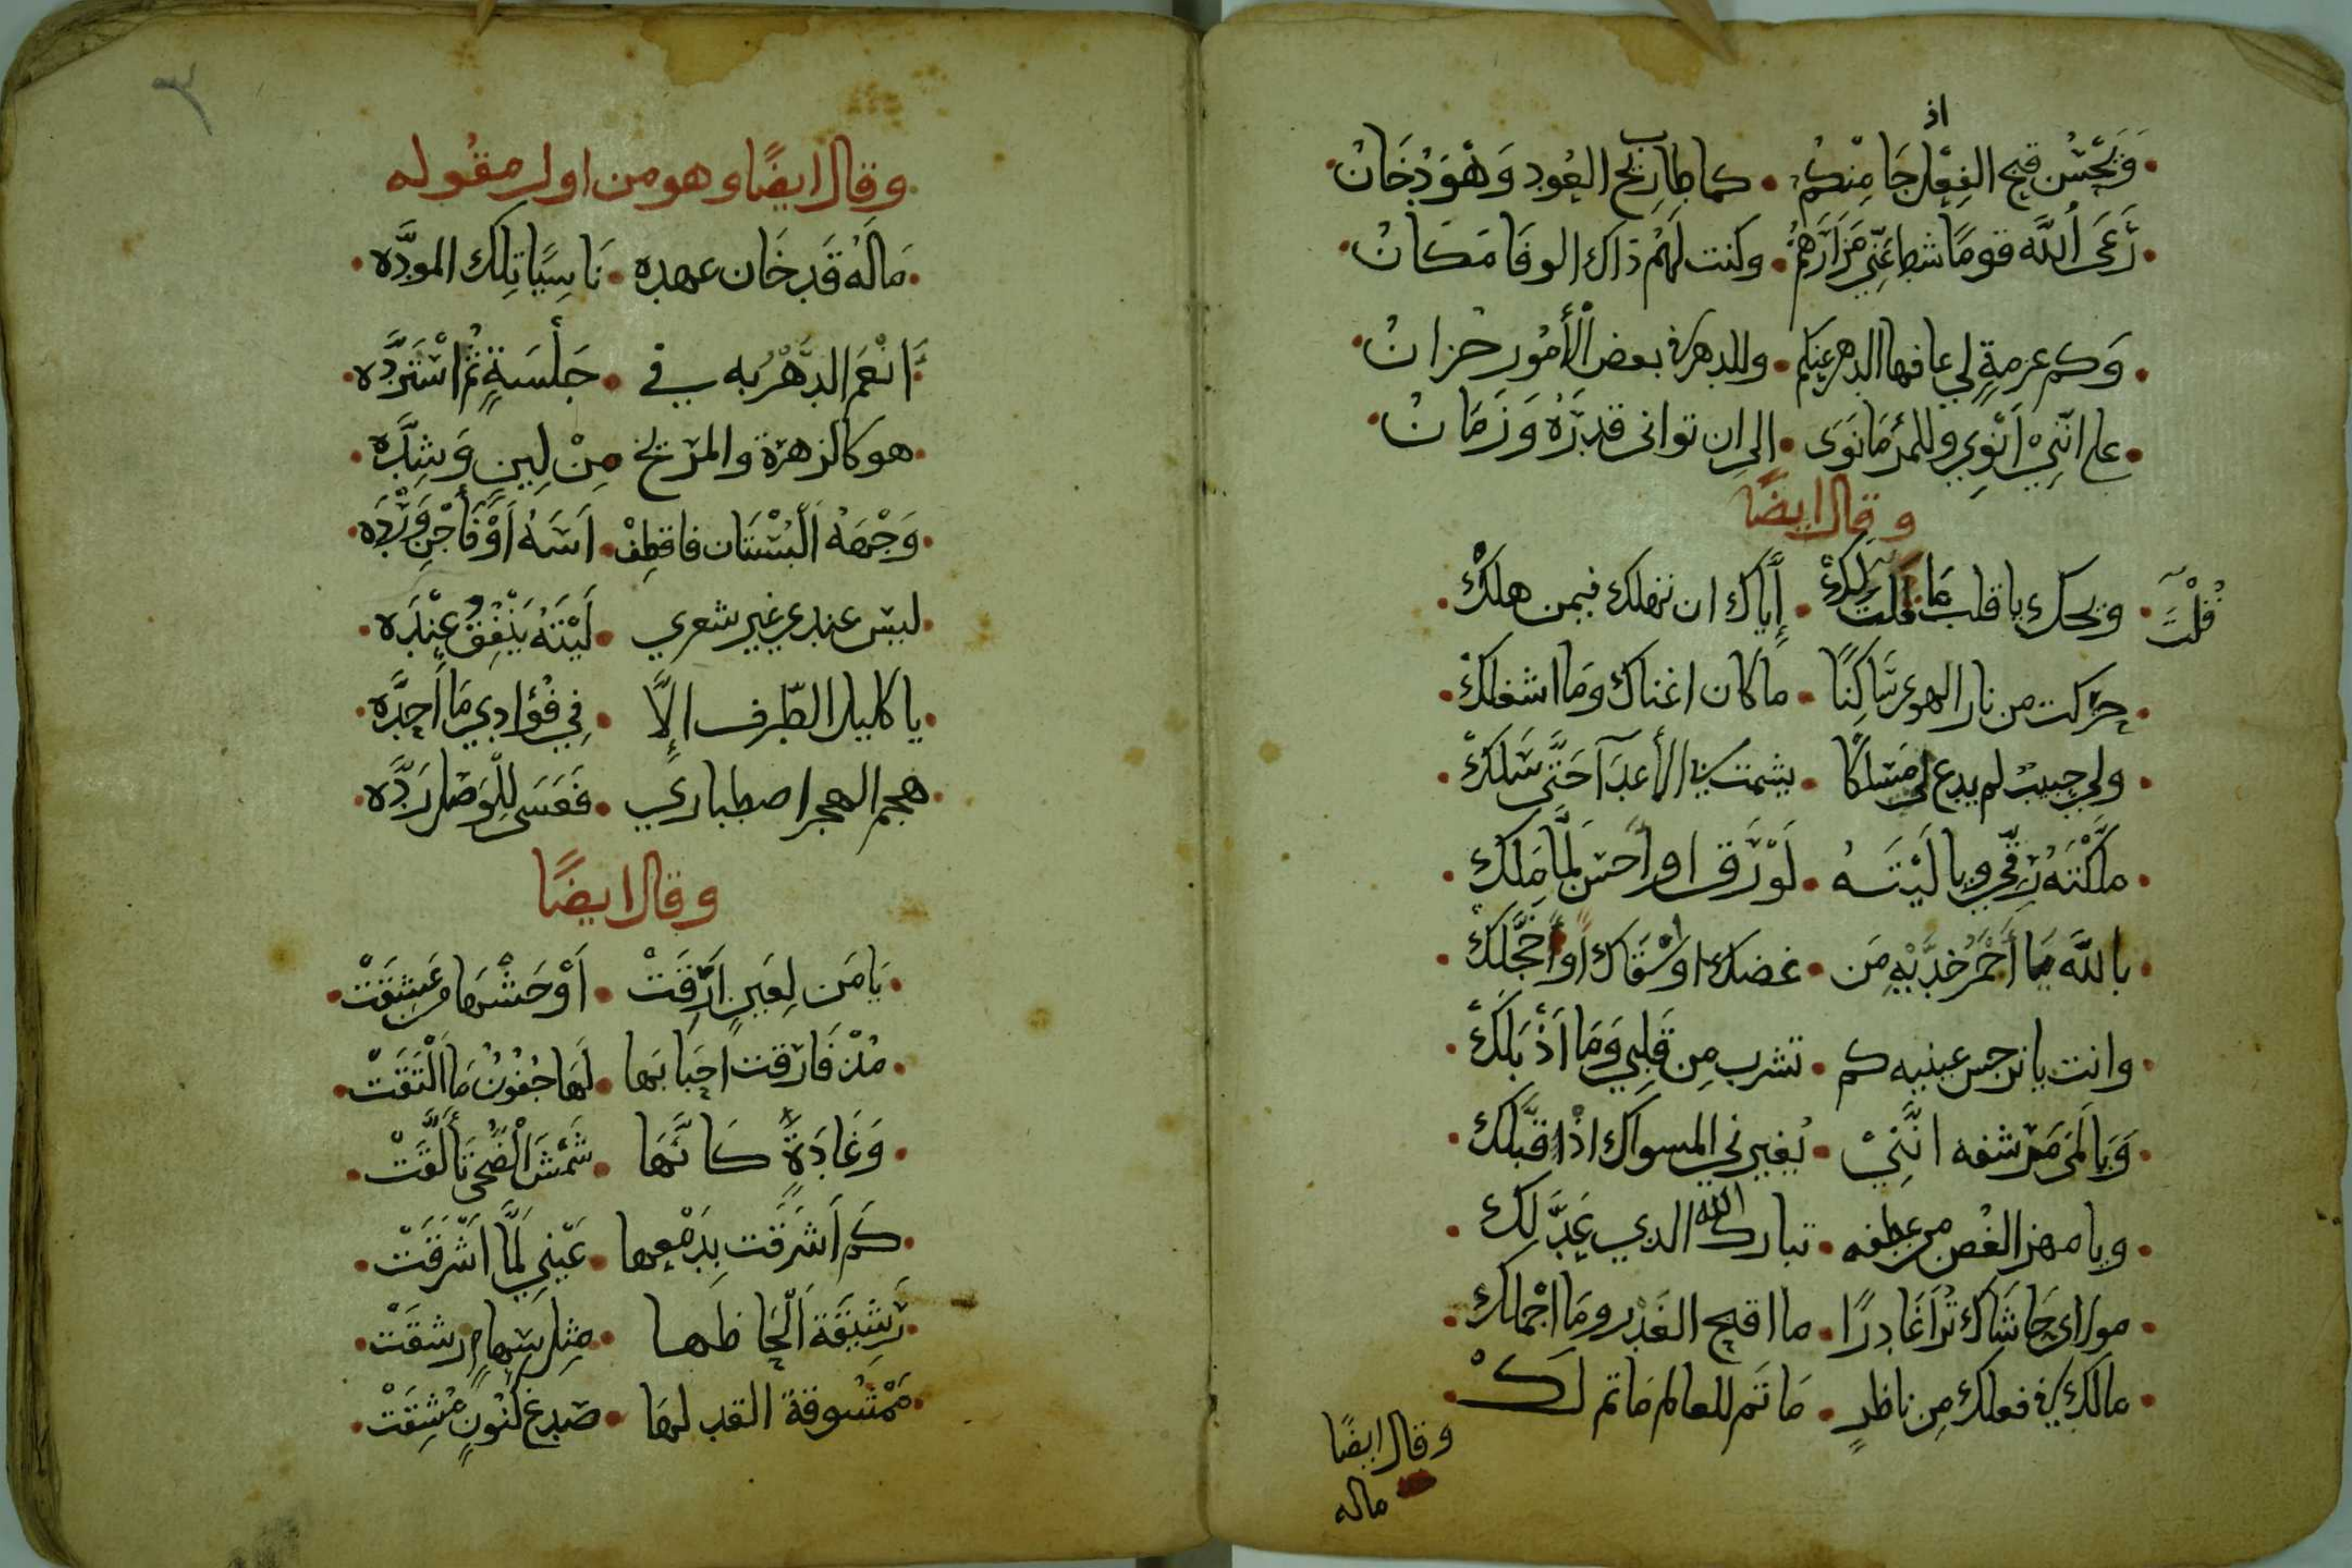 وَيَحْسُن قبح الفِعْل اذ جَا مِنْكُم • كما طاب ريح العُود وَهْوَ دُخَانُ
رَعَى اُللَّه قومًا شط عَنّي مَزَارَهُمُ • وكنت لَهُم ذاك الوفا مَكَانُ
وَكم عزمةٍ لي عافها الدهر عنكم • وللدهر في بعض الأمُور حزانُ
على انّنِيْ اَنْوِي وللمرْءِ مَا نَوَى • الى ان تواتى قدرَةُ وَزَمَانُ
وقال ايضًا
ويحك يا قلب اما قُلْتُ لَكْ • إِيَّاك ان تهلك فيمن هلكْ
قُلْتُ
حرّكت من نار الهوى سَاكِنًا • ما كان اغناك ومَا اشغلكْ
ولي حبيبٌ لم يدع لي مَسلكًا • يشمت بي الأعدَآ حَتَّى سَلكْ
مَلَّكْتَهُ رِقّي ويا لَيْتَهُ • لَوْ رَق او اَحسَن لَمَّا مَلَكْ
بالله يَا اَحْمَرَ خدَّيْهِ مَن • عضك او اَسْقَاك او اَخْجَلَكْ
وانت يا نرجس عينيه كم • تشرب مِن قَلبِي وَمَا اَذْبَلَكْ
وَيَا لَمَى مَرْشفه انَّنِيْ • يُغيرني المسواك اذْ قَبَّلَكْ
ويا مهز الغُصن من عِطفه • تبارك الله الذي عَدَّلَكْ
مولاى حَاشَاك تُرَا غَادِرًا • ما اقبح الغَدْر ومَا اجْملكْ
مالك في فعلك مِن ناظرٍ • مَا تم للعالم مَا تم لَكْ
وقال ايضًا
ماله
٣
وقال ايضًا وهو من اول مقُوله
مَالَهُ قَد خَان عهده • نَاسِيًا تِلك المودَّه
اَنْعَم الدَّهْرُ به في • جَلْسَةٍ ثُمَّ اسْتَرَدَّه
هو كالزهرة والمرّيخ • مِنْ لِينٍ وَشِدَّه
وَجْهَهُ اَلْبُسْتَان فاقطِفْ • اَسَهُ اَوْ فَاجْنِ وَرْدَه
ليسَ عندي غير شعري • لَيْتَهُ يَنْفِقُ عِنْدَه
يا كليل الطّرف الاَّ • فِي فُؤادِي مَا اَحدَّه
هجم الهجر اصطباري • فَعَسَى لِلْوَصْل رَدَّه
وقال ايضًا
يَا مَن لِعَينٍ اَرِقَتْ • اَوْحَشْهَا من عَشِقَتْ
مُذ فَارَقت احبَابَها • لَهَا جُفُونُ مَا الْتَقَتْ
وَغَادَةٍ كَانَّهَا • شَمْسُ الْضُّحَى تَأَلَّقَتْ
كَم اَشرَقَت بِدَمْعِها • عَيْنِي لَمَّا اَشْرَقَتْ
رَشيقَة اَلْحَاظهَا • مِثِل سِهَامٍ رشقَتْ
مَمْشُوقة القد لهَا • صدغ كنُونٍ مُشِقَتْ